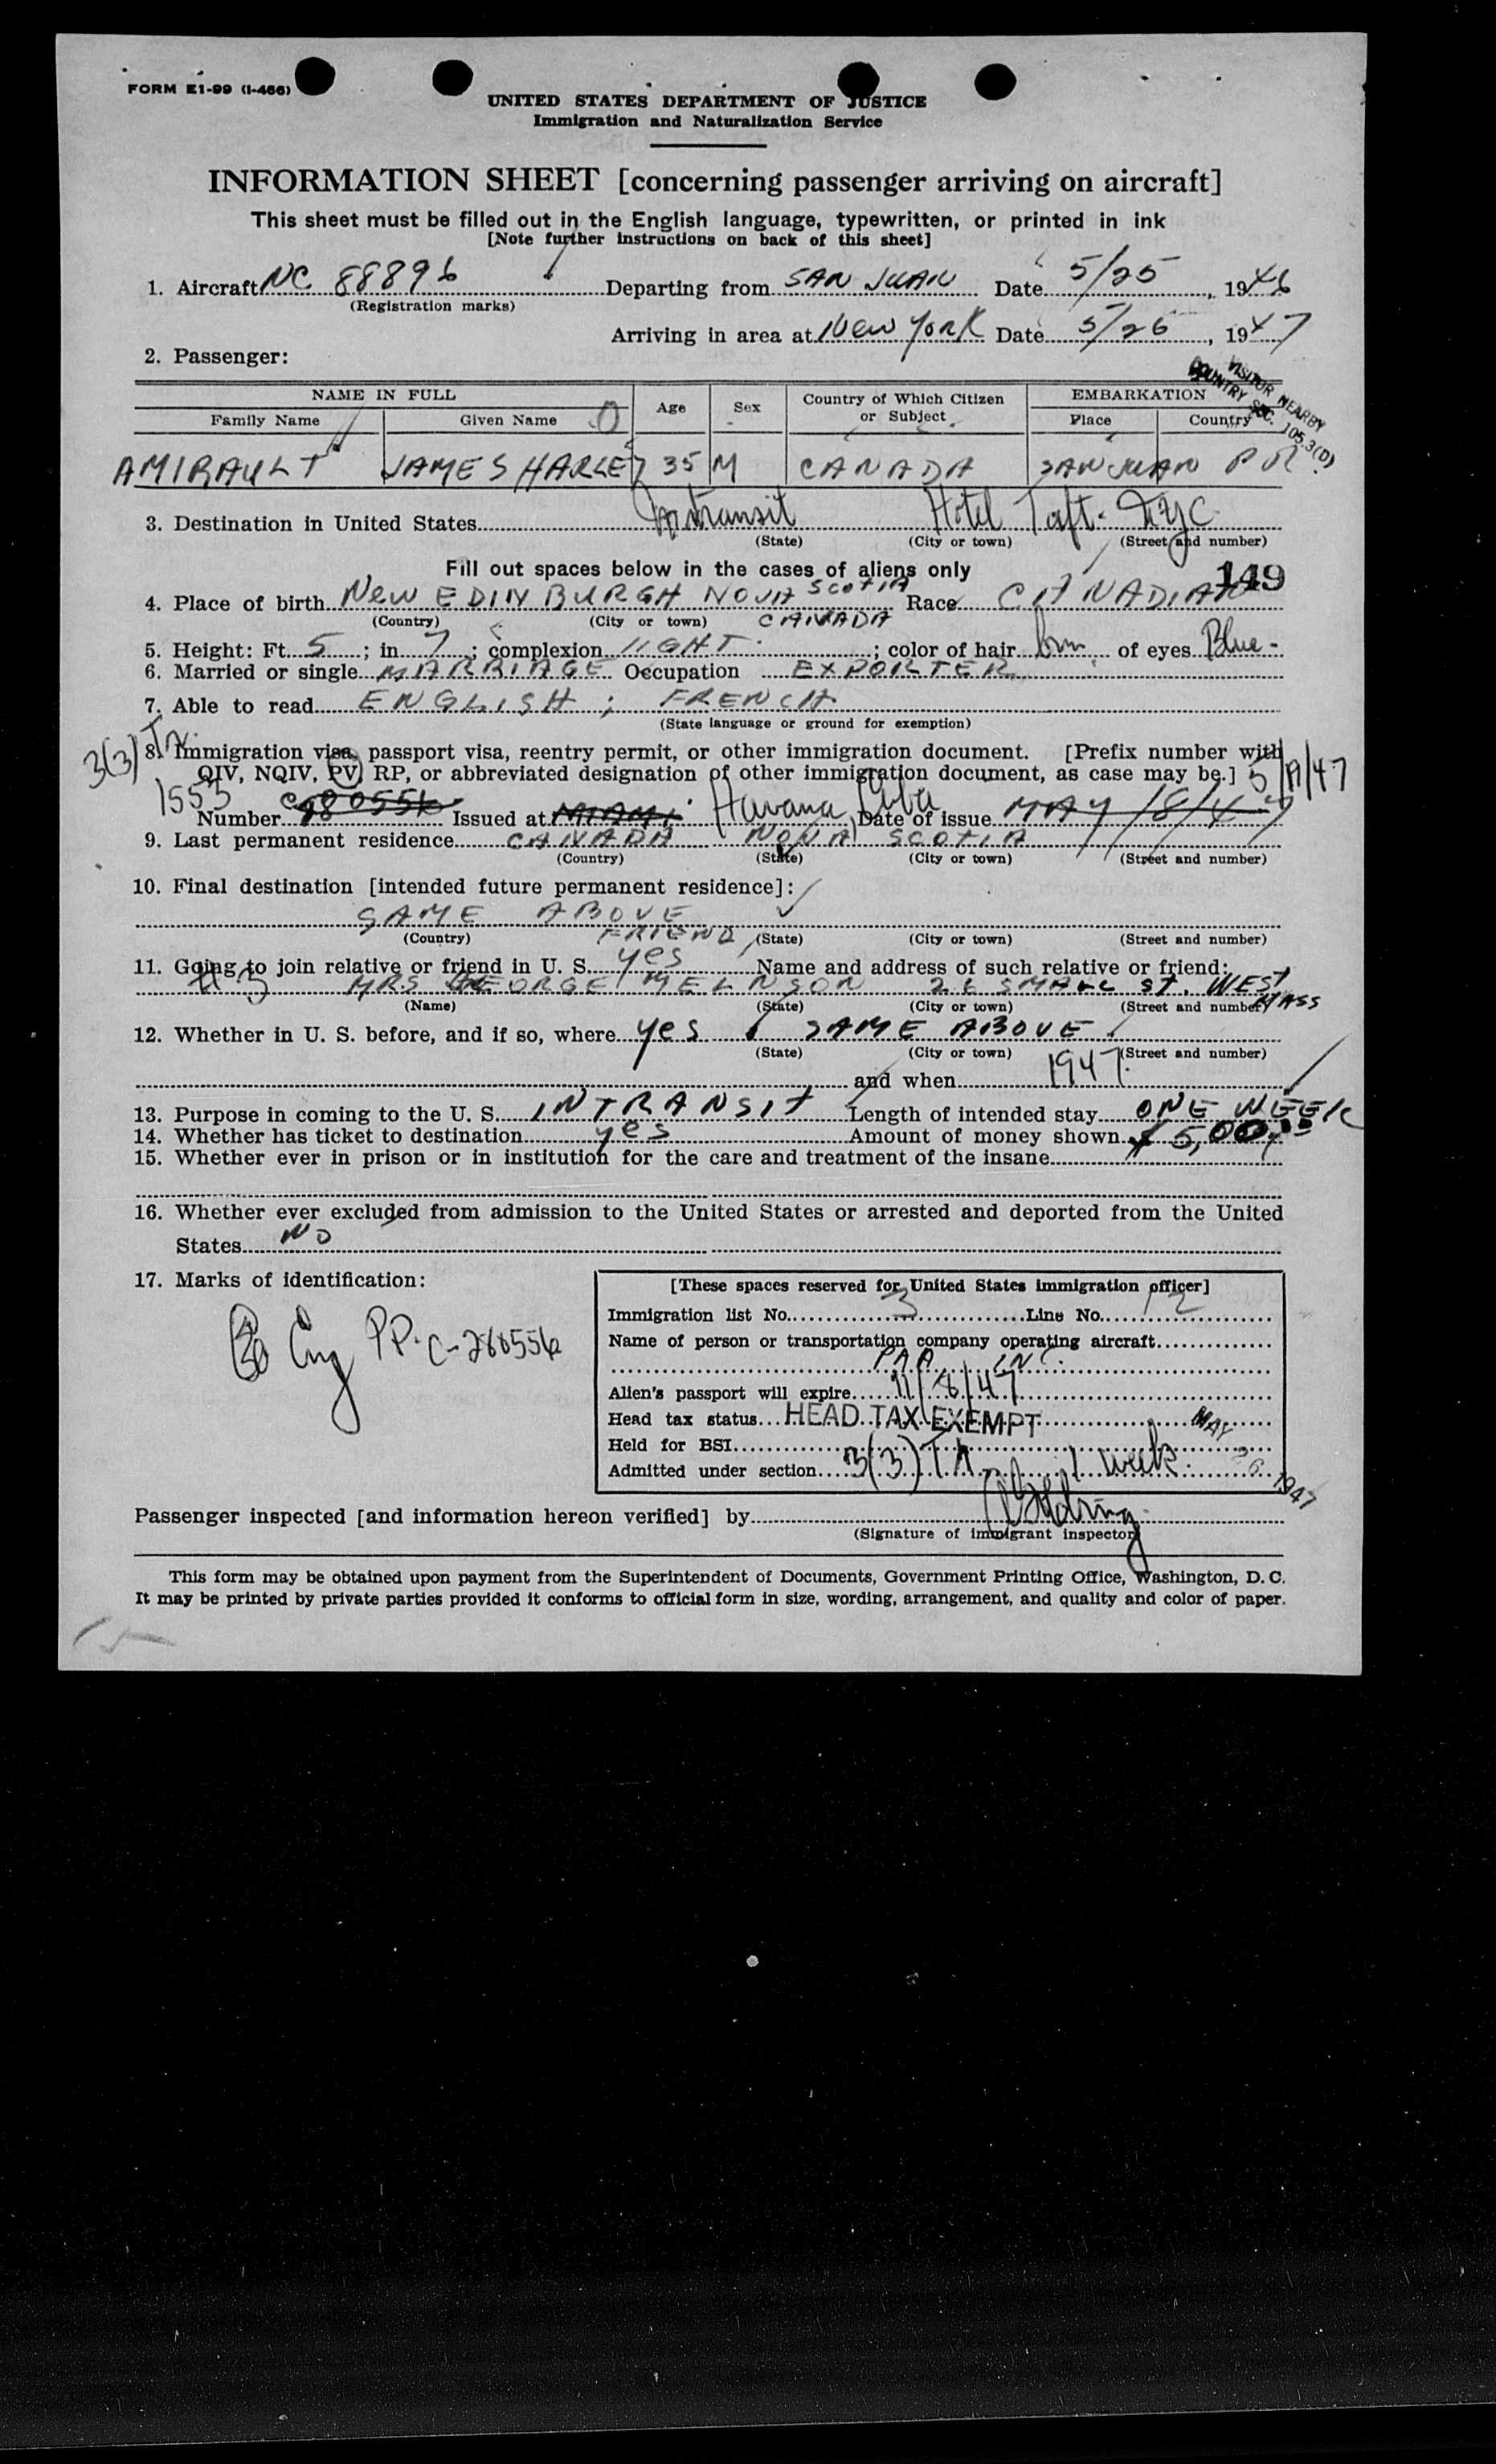 FORM E1-99 (I-466)
UNITED STATES DEPARTMENT OF JUSTICE
Immigration and Naturalization Service
INFORMATION SHEET [concerning passenger arriving on aircraft]
This sheet must be filled out in the English language, typewritten, or printed in ink
[Note further instructions on back of this sheet]
1. Aircraft NC 88896 Departing from SAN JUAN Date 5/25, 1946
(Registration marks)
Arriving in area at New York Date 5/26, 1947
2. Passenger:
VISITOR NEARBY
COUNTRY SEC. 105.3(D)
NAME IN FULL Age Sex Country of Which Citizen or Subject EMBARKATION
Family Name Given Name Place Country
AMIRAULT JAMES HARLEY 35 M CANADA SAN JUAN P R
3. Destination in United States Intransit Hotel Taft. NYC
(State) (City or town) (Street and number)
Fill out spaces below in the cases of aliens only 149
4. Place of birth New EDINBURGH NOVA SCOTIA Race CANADIAN
(Country) (City or town) CANADA
5. Height: Ft. 5; in 7; complexion LIGHT; color of hair brn. of eyes Blue-
6. Married or single MARRIAGE Occupation EXPORTER
7. Able to read ENGLISH; FRENCH
(State language or ground for exemption)
3(3) Tr.
8. Immigration visa, passport visa, reentry permit, or other immigration document. [Prefix number with
QIV, NQIV, PV, RP, or abbreviated designation of other immigration document, as case may be.] 5/19/47
1553
Number Issued at MIAMI Havana Cuba Date of issue MAY /8/47
9. Last permanent residence CANADA NOVA SCOTIA
(Country) (State) (City or town) (Street and number)
10. Final destination [intended future permanent residence]:
SAME ABOVE
(Country) FRIEND (State) (City or town) (Street and number)
11. Going to join relative or friend in U. S. yes Name and address of such relative or friend:
#3 MRS GEORGE MELNSON 26 SMALL ST. WEST
(Name) (State) (City or town) (Street and number) MASS
12. Whether in U. S. before, and if so, where yes SAME ABOVE
(State) (City or town) (Street and number)
and when 1947.
13. Purpose in coming to the U. S. INTRANSIT Length of intended stay ONE WEEK
14. Whether has ticket to destination yes Amount of money shown
15. Whether ever in prison or in institution for the care and treatment of the insane
16. Whether ever excluded from admission to the United States or arrested and deported from the United
States NO
17. Marks of identification:
PP. C-280556
[These spaces reserved for United States immigration officer]
Immigration list No. 3 Line No. 12
Name of person or transportation company operating aircraft
PAA, INC.
Alien's passport will expire 11/8/47
Head tax status HEAD TAX EXEMPT
Held for BSI
Admitted under section 3(3) Tr. 1 week
MAY 26 1947
Passenger inspected [and information hereon verified] by
(Signature of immigrant inspector)
This form may be obtained upon payment from the Superintendent of Documents, Government Printing Office, Washington, D. C.
It may be printed by private parties provided it conforms to official form in size, wording, arrangement, and quality and color of paper.